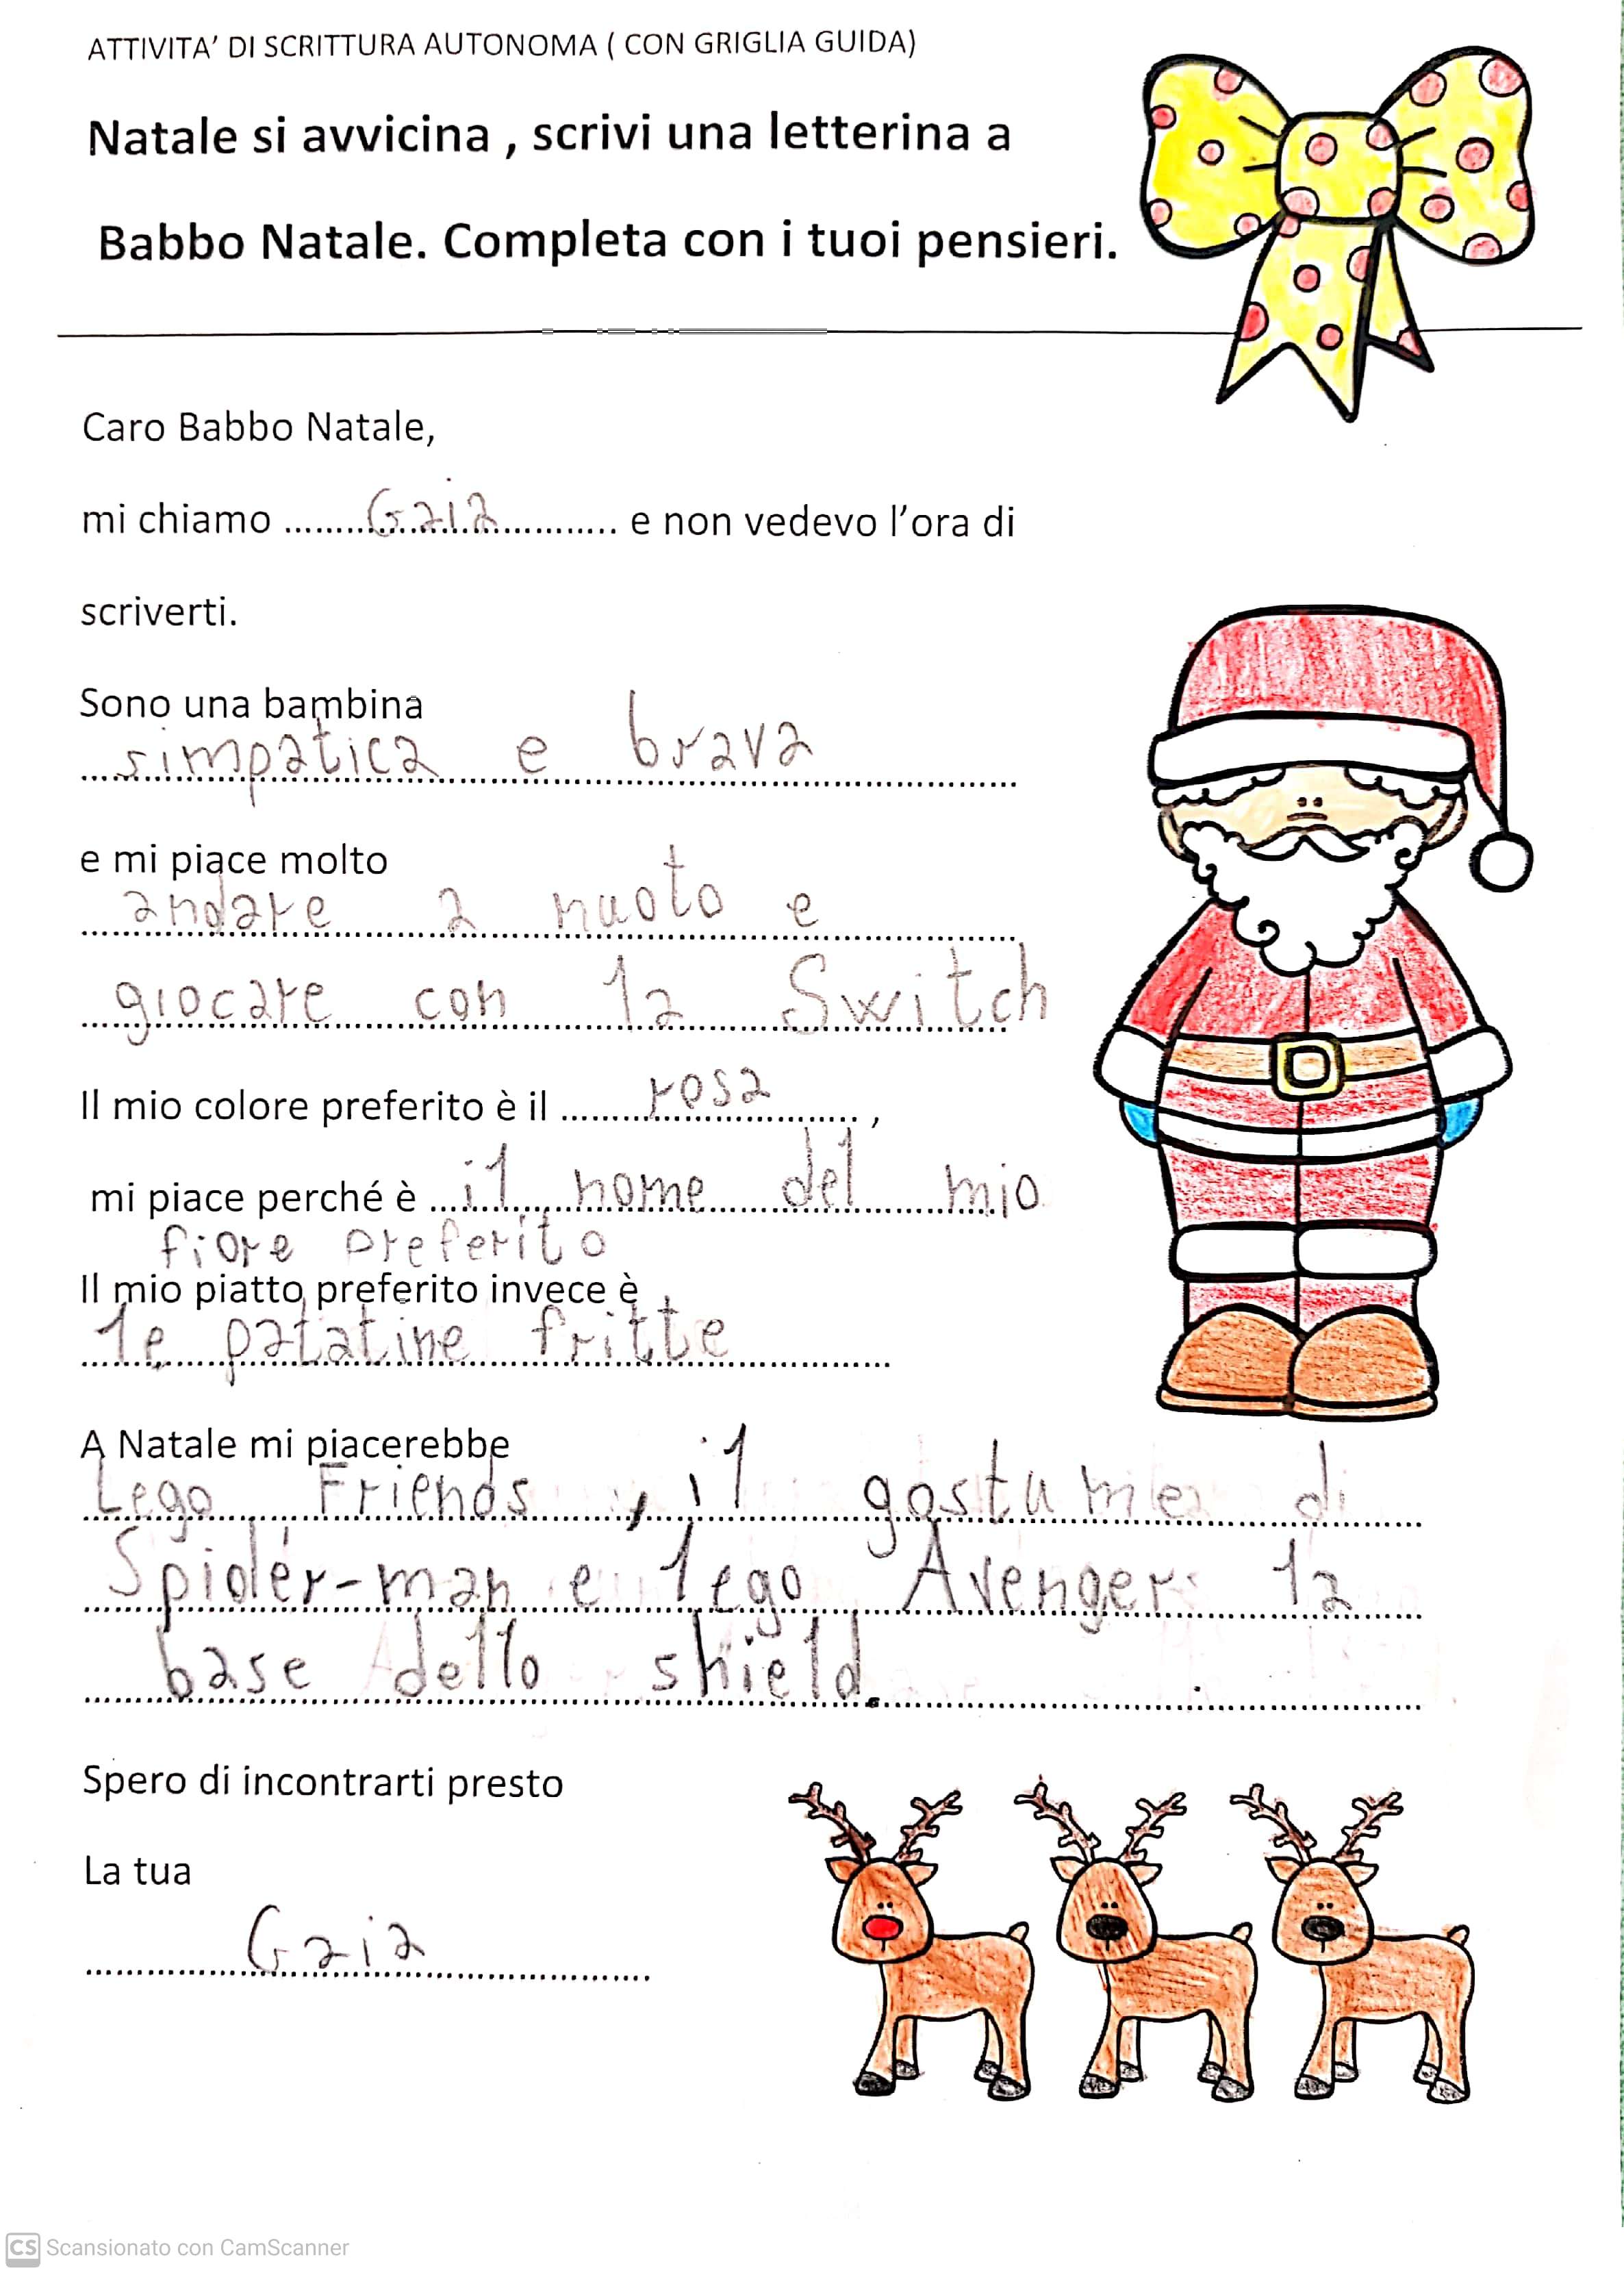 ATTIVITA' DI SCRITTURA AUTONOMA ( CON GRIGLIA GUIDA)
Natale si avvicina , scrivi una letterina a
Babbo Natale. Completa con i tuoi pensieri.
Caro Babbo Natale,
mi chiamo ......Gaia........... e non vedevo l'ora di
scriverti.
Sono una bambina
simpatica e brava
e mi piace molto
andare a nuoto e
giocare con la Switch
Il mio colore preferito è il ......rosa...... ,
mi piace perché è ...il nome del mio
fiore preferito
Il mio piatto preferito invece è
le patatine fritte
A Natale mi piacerebbe
Lego Friends , il gostume di
Spider-man e lego Avenger la
base dello shield.
Spero di incontrarti presto
La tua
Gaia
CS Scansionato con CamScanner